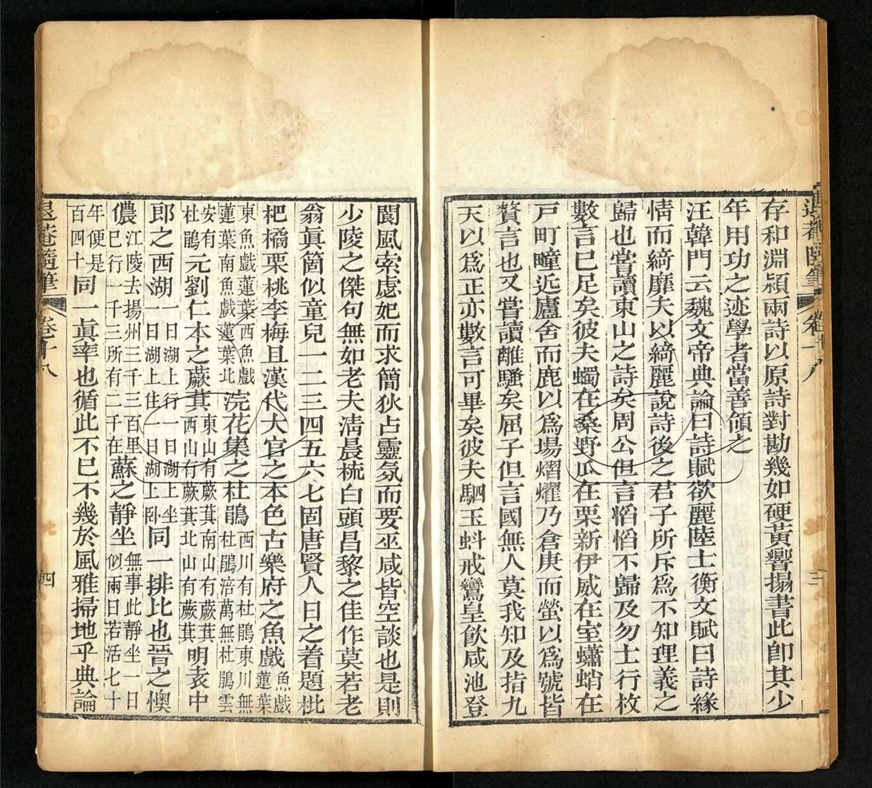 存和淵潁兩詩以原詩對勘幾如硬黃響搨書此卽其少
年用功之迹學者當善領之
汪韓門云魏文帝典論曰詩賦欲麗陸士衡文賦曰詩緣
情而綺靡夫以綺麗說詩後之君子所斥爲不知理義之
歸也嘗讀東山之詩矣周公但言慆慆不歸及勿士行枚
數言已足矣彼夫蠋在桑野瓜在栗新伊威在室蠨蛸在
戸町疃近廬舍而鹿以爲場熠燿乃倉庚而螢以爲號皆
贅言也又嘗讀離騷矣屈子但言國無人莫我知及指九
天以爲正亦數言可畢矣彼夫駟玉虯戒鸞皇飲咸池登
退菴隨筆
卷十八
三
閬風索虙妃而求簡狄占靈氛而要巫咸皆空談也是則
少陵之傑句無如老夫清晨梳白頭昌黎之佳作莫若老
翁眞箇似童兒一二三四五六七固唐賢人日之着題枇
杷橘栗桃李梅且漢代大官之本色古樂府之魚戲魚戲蓮葉
東魚戲蓮葉西魚戲蓮葉南魚戲蓮葉北浣花集之杜鵑西川有杜鵑東川無杜鵑涪萬無杜鵑雲
安有杜鵑元劉仁本之蕨萁東山有蕨萁南山有蕨萁西山有蕨萁北山有蕨萁明袁中
郎之西湖一日湖上行一日湖上坐一日湖上住一日湖上臥同一排比也晉之懊
儂江陵去揚州三千三百里已行一千三所有二千在蘇之靜坐無事此靜坐一日似兩日若活七十
年便是百四十同一眞率也循此不已不幾於風雅掃地乎典論
退菴隨筆
卷十八
四